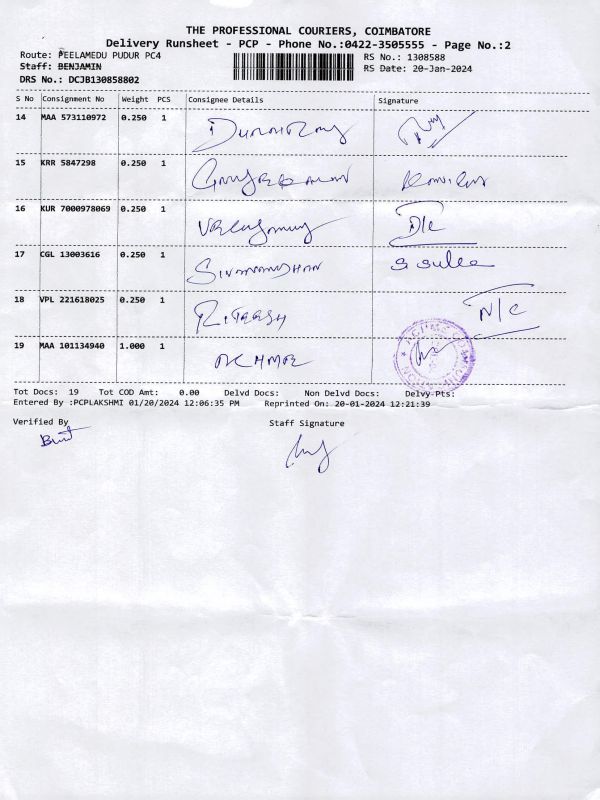 THE PROFESSIONAL COURIERS, COIMBATORE
Delivery Runsheet - PCP - Phone No.:0422-3505555 - Page No.:2
Route: PEELAMEDU PUDUR PC4
RS No.: 1308588
Staff: BENJAMIN
RS Date: 20-Jan-2024
DRS No.: DCJB130858802
S No Consignment No Weight PCS Consignee Details Signature
14 MAA 573110972 0.250 1
15 KRR 5847298 0.250 1
16 KUR 7000978069 0.250 1 D/C
17 CGL 13003616 0.250 1
18 VPL 221618025 0.250 1 RITEESH N/C
19 MAA 101134940 1.000 1
Tot Docs: 19 Tot COD Amt: 0.00 Delvd Docs: Non Delvd Docs: Delvy-Pts:
Entered By :PCPLAKSHMI 01/20/2024 12:06:35 PM Reprinted On: 20-01-2024 12:21:39
Verified By Staff Signature